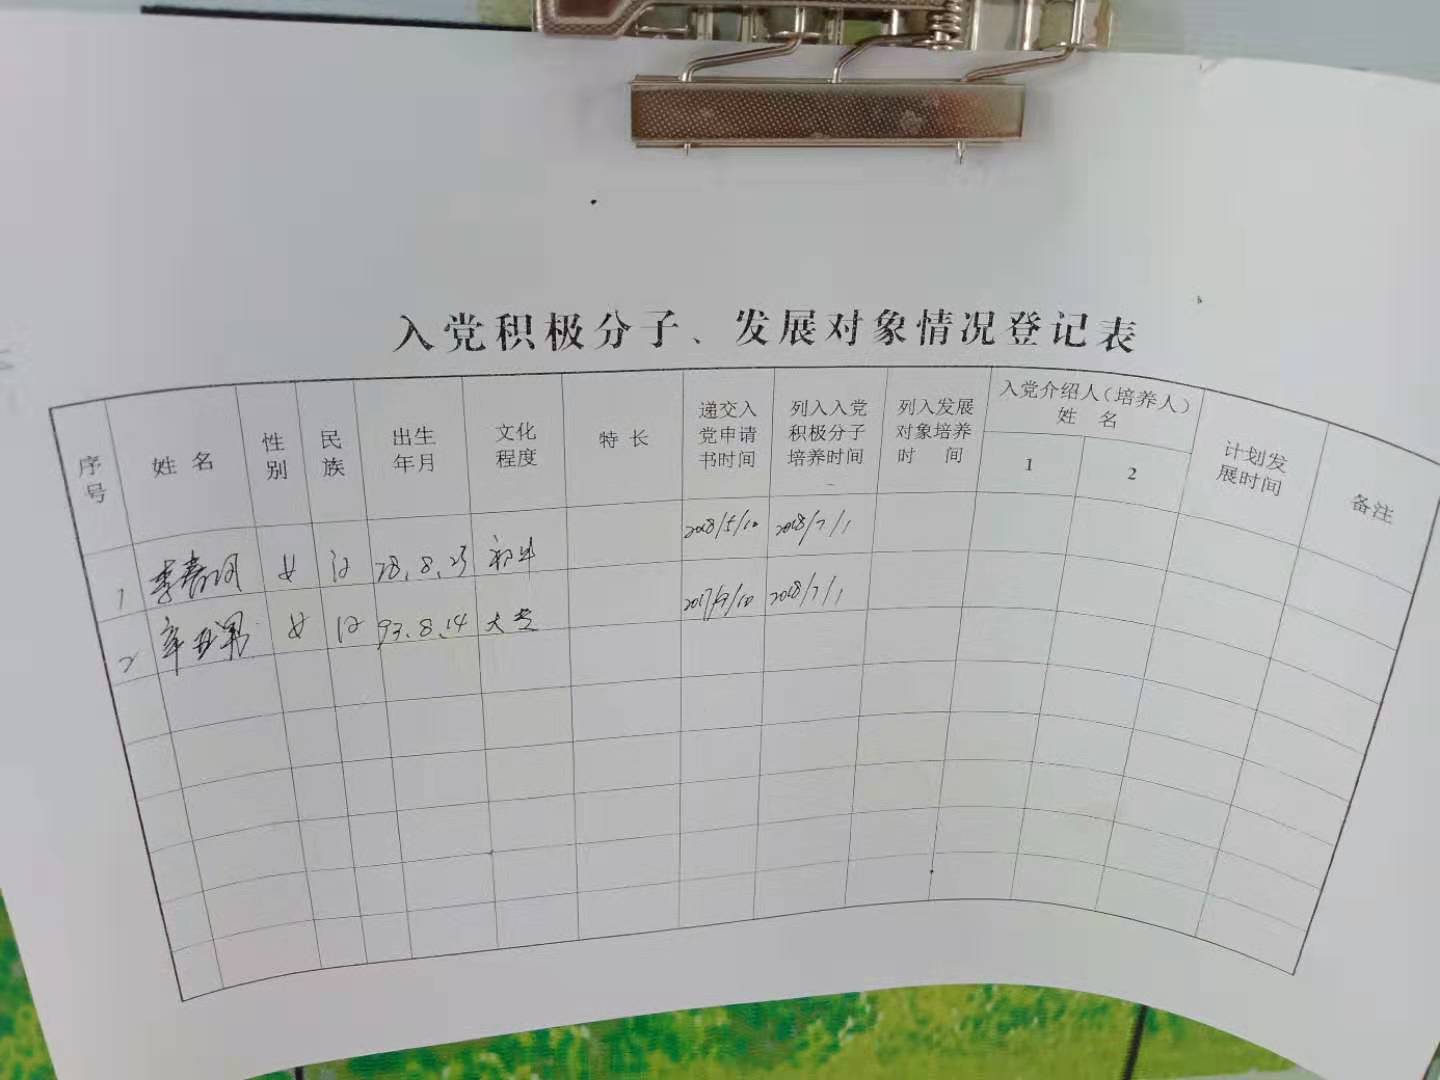 入党积极分子、发展对象情况登记表
序号 姓名 性别 民族 出生年月 文化程度 特长 递交入党申请书时间 列入入党积极分子培养时间 列入发展对象培养时间 入党介绍人（培养人）姓名 计划发展时间 备注
1 2
1 李春 女 汉 78.8.25 初中 2018/5/10 2018/7/1
2 辛亚男 女 汉 93.8.14 大专 2017/9/10 2018/7/1